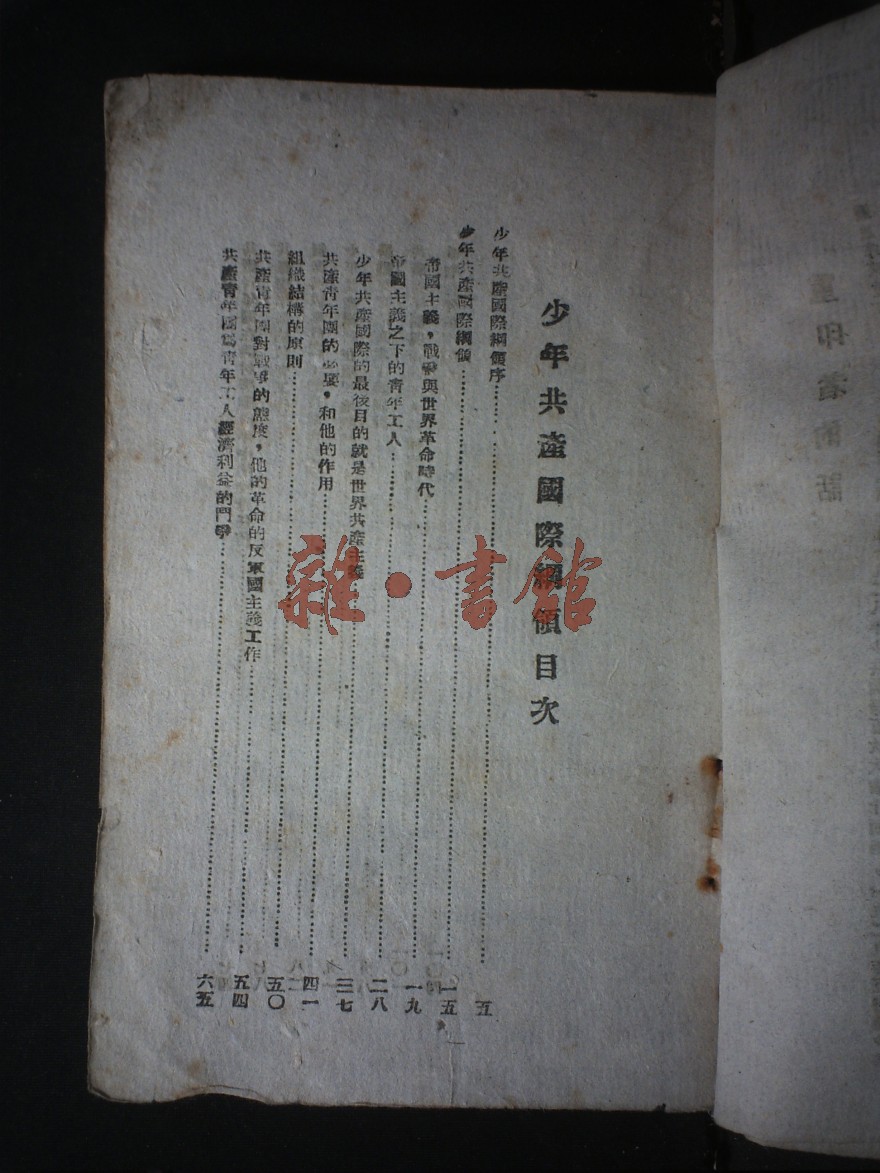 少年共產國際綱領目次
少年共產國際綱領序…………五
少年共產國際綱領…………一五
帝國主義，戰爭與世界革命時代…………一九
帝國主義之下的青年工人…………二八
少年共產國際的最後目的就是世界共產主義…………三七
共產青年團的必要，和他的作用…………四一
組織結構的原則…………五〇
共產青年團對戰爭的態度，他的革命的反軍國主義工作…………五四
共產青年團爲青年工人經濟利益的鬥爭…………六五
雜·書館
印者的話